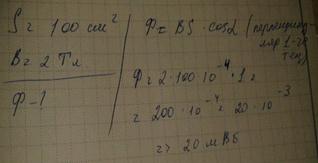 S = 100 см²
B = 2 Тл
Ф - ?
Ф = BS · cosα (перпендику
ляр 1-
Ф = 2 · 100 · 10⁻⁴ · 1 =
= 200 · 10⁻⁴ = 20 · 10⁻³
=> 20 мВб